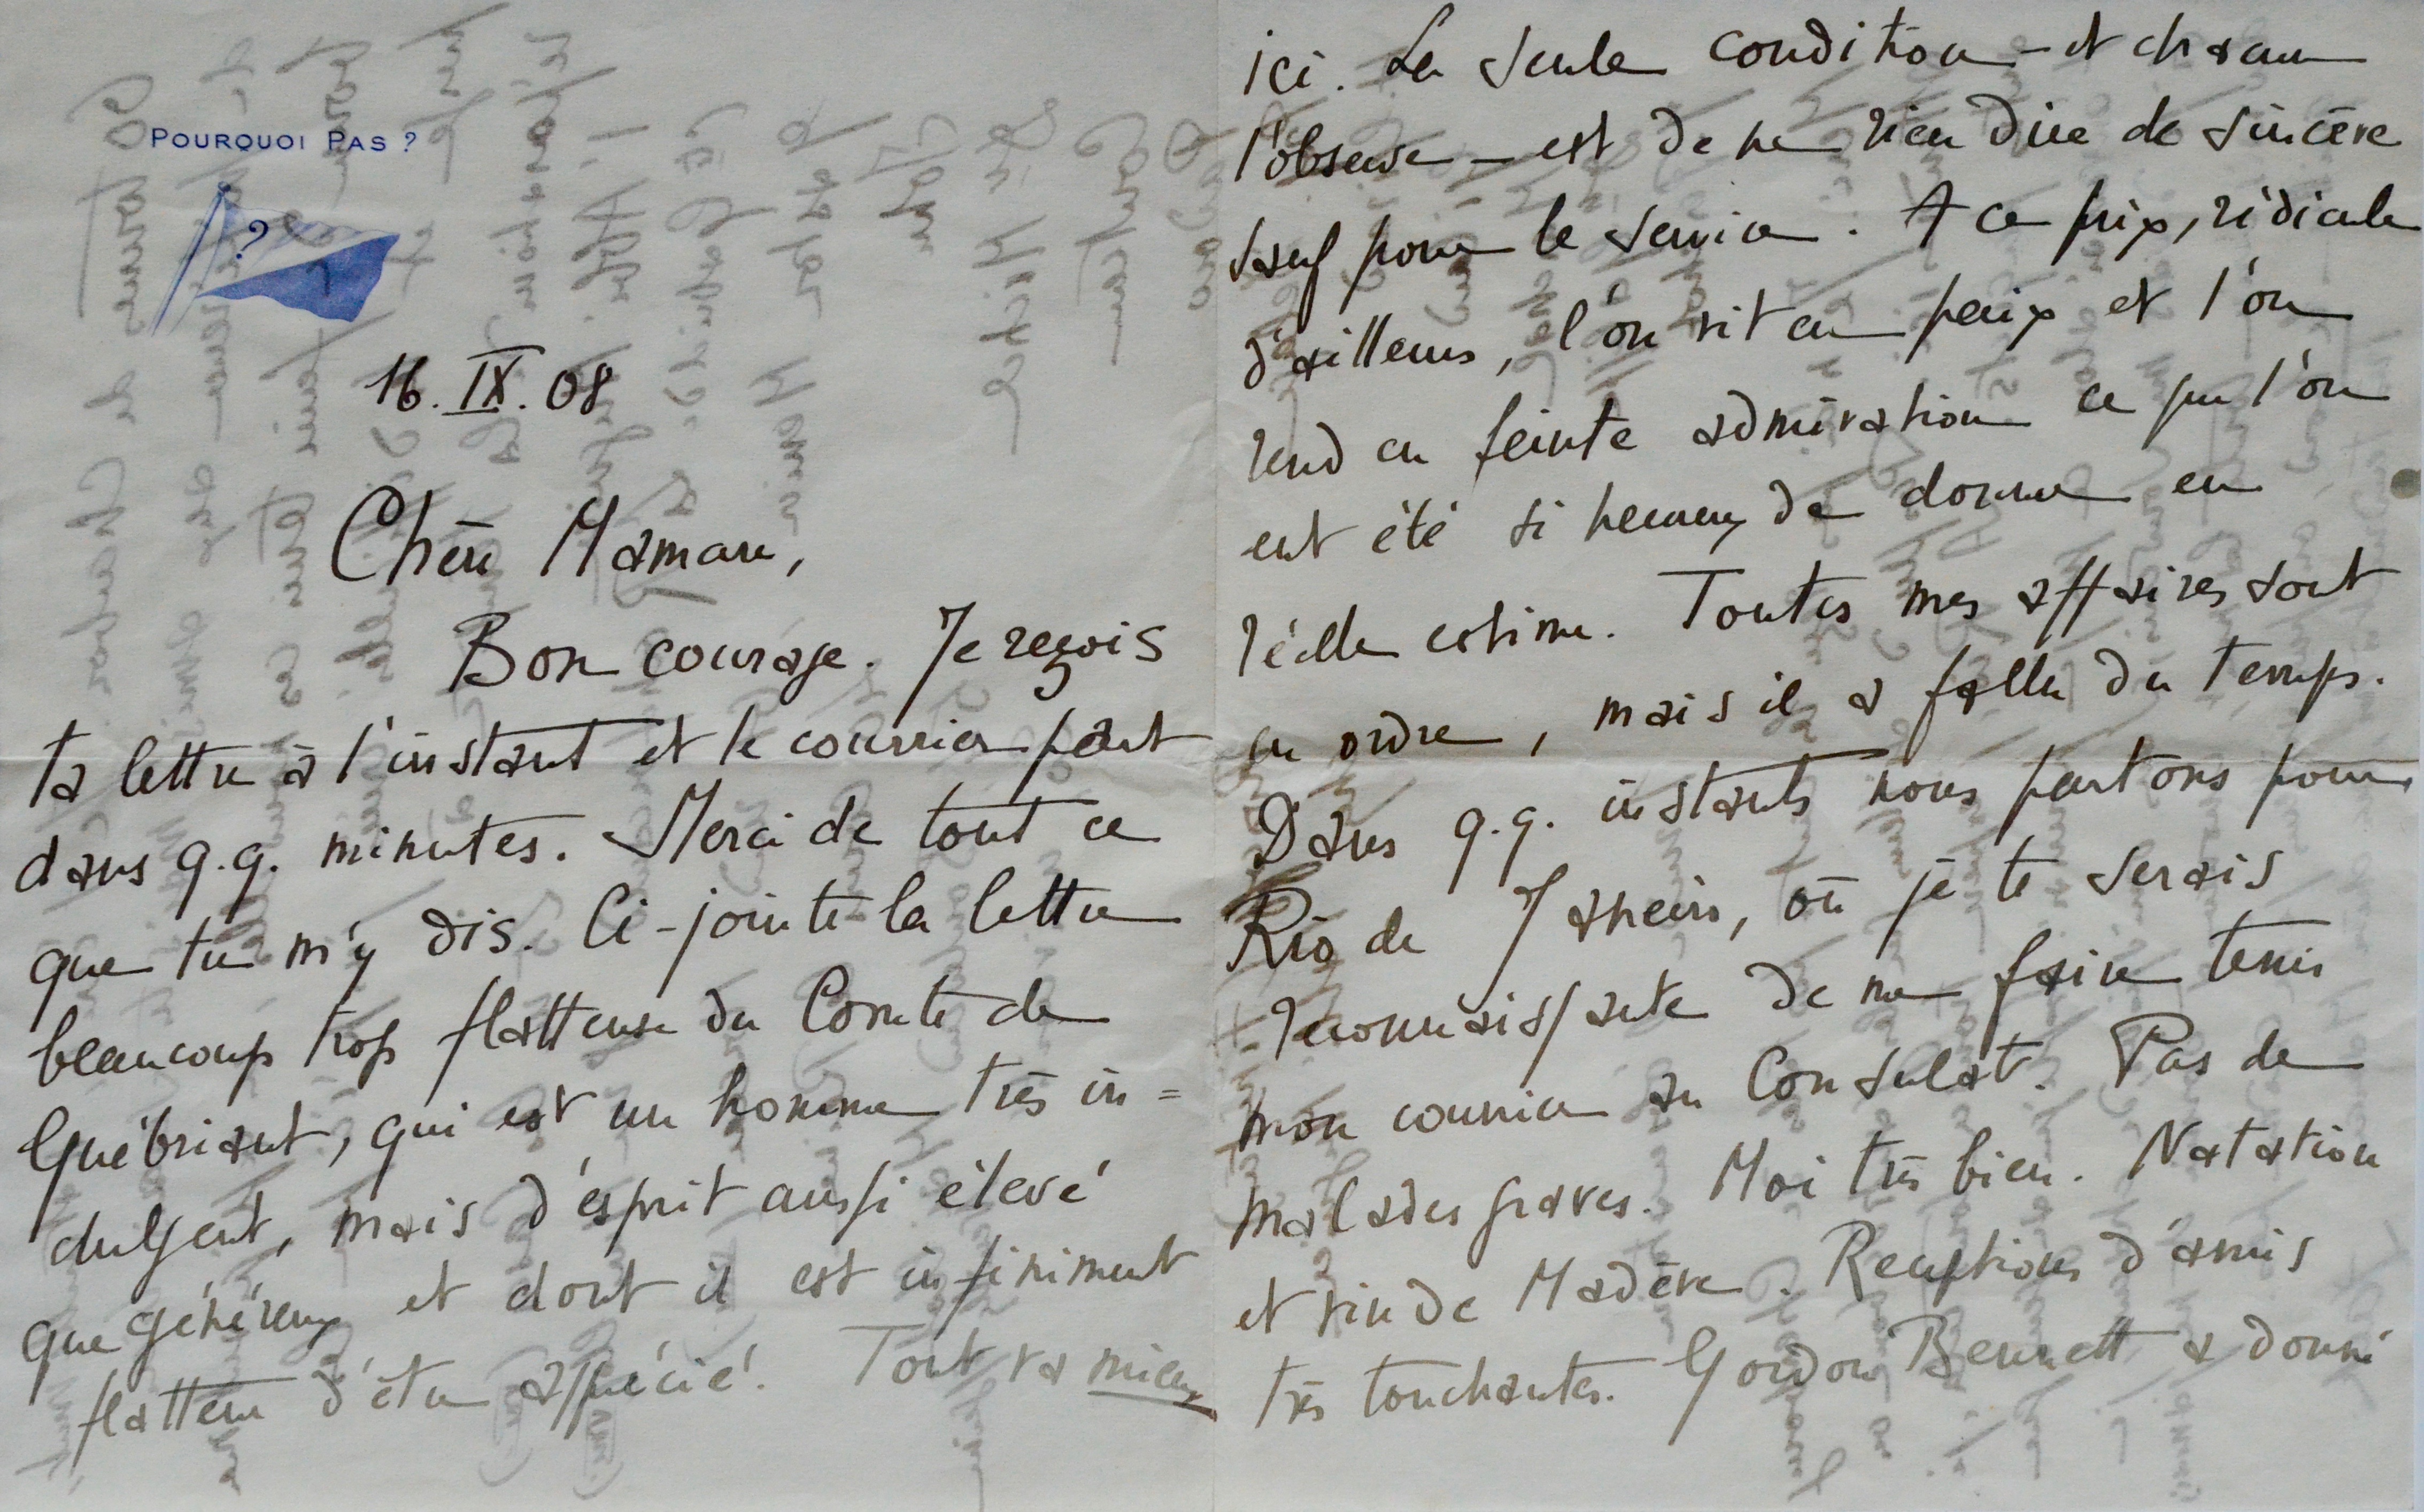 POURQUOI PAS ?
?
16. IX. 08
Chère Maman,
Bon courage. Je reçois
ta lettre à l'instant et le courrier part
dans q.q. minutes. Merci de tout ce
que tu m'y dis. Ci-jointe la lettre
beaucoup trop flatteuse du Comte de
Guébriant, qui est un homme très in=
dulgent, mais d'esprit aussi élevé
que généreux et dont il est infiniment
flatteur d'être apprécié. Tout va mieux
ici. La seule condition - et chacun
l'observe - est de ne rien dire de sincère
sauf pour le service. A ce prix, ridicule
d'ailleurs, l'on vit en paix et l'on
rend en feinte admiration ce que l'on
eut été si heureux de donner en
réelle estime. Toutes mes affaires sont
en ordre, mais il a fallu du temps.
Dans q.q. instants nous partons pour
Rio de Janeiro, où je te serais
reconnaissante de me faire tenir
mon courrier au Consulat. Pas de
malades graves. Moi très bien. Natation
et vin de Madère. Receptions d'amis
très touchantes. Gordon Bennett a donné